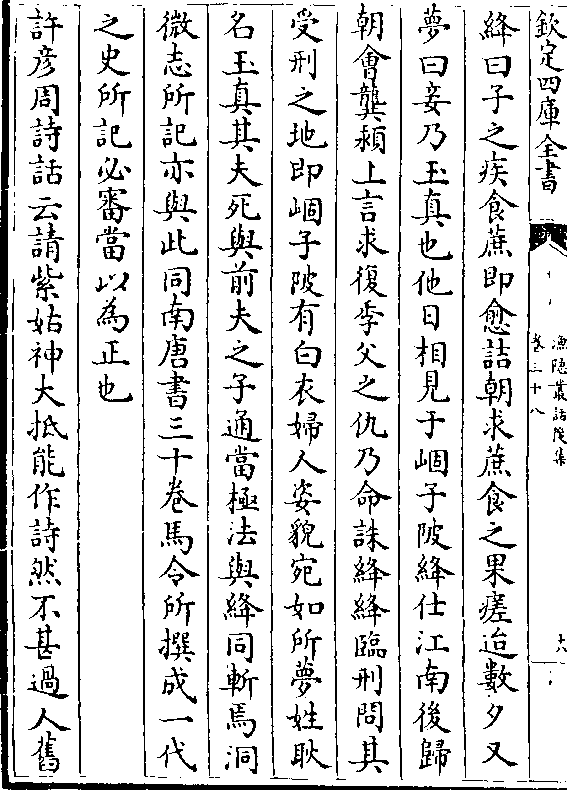 欽定四庫全書
漁隠叢話後集
卷三十八
六
絳曰子之疾食蔗即愈詰朝求蔗食之果瘥迨數夕又
夢曰妾乃玉真也他日相見于崓子陂絳仕江南後歸
朝會龔頴上言求復季父之仇乃命誅絳絳臨刑問其
受刑之地即崓子陂有白衣婦人姿貌宛如所夢姓耿
名玉真其夫死與前夫之子通當極法與絳同斬焉洞
微志所記亦與此同南唐書三十卷馬令所撰成一代
之史所記必審當以為正也
許彦周詩話云請紫姑神大抵能作詩然不甚過人舊